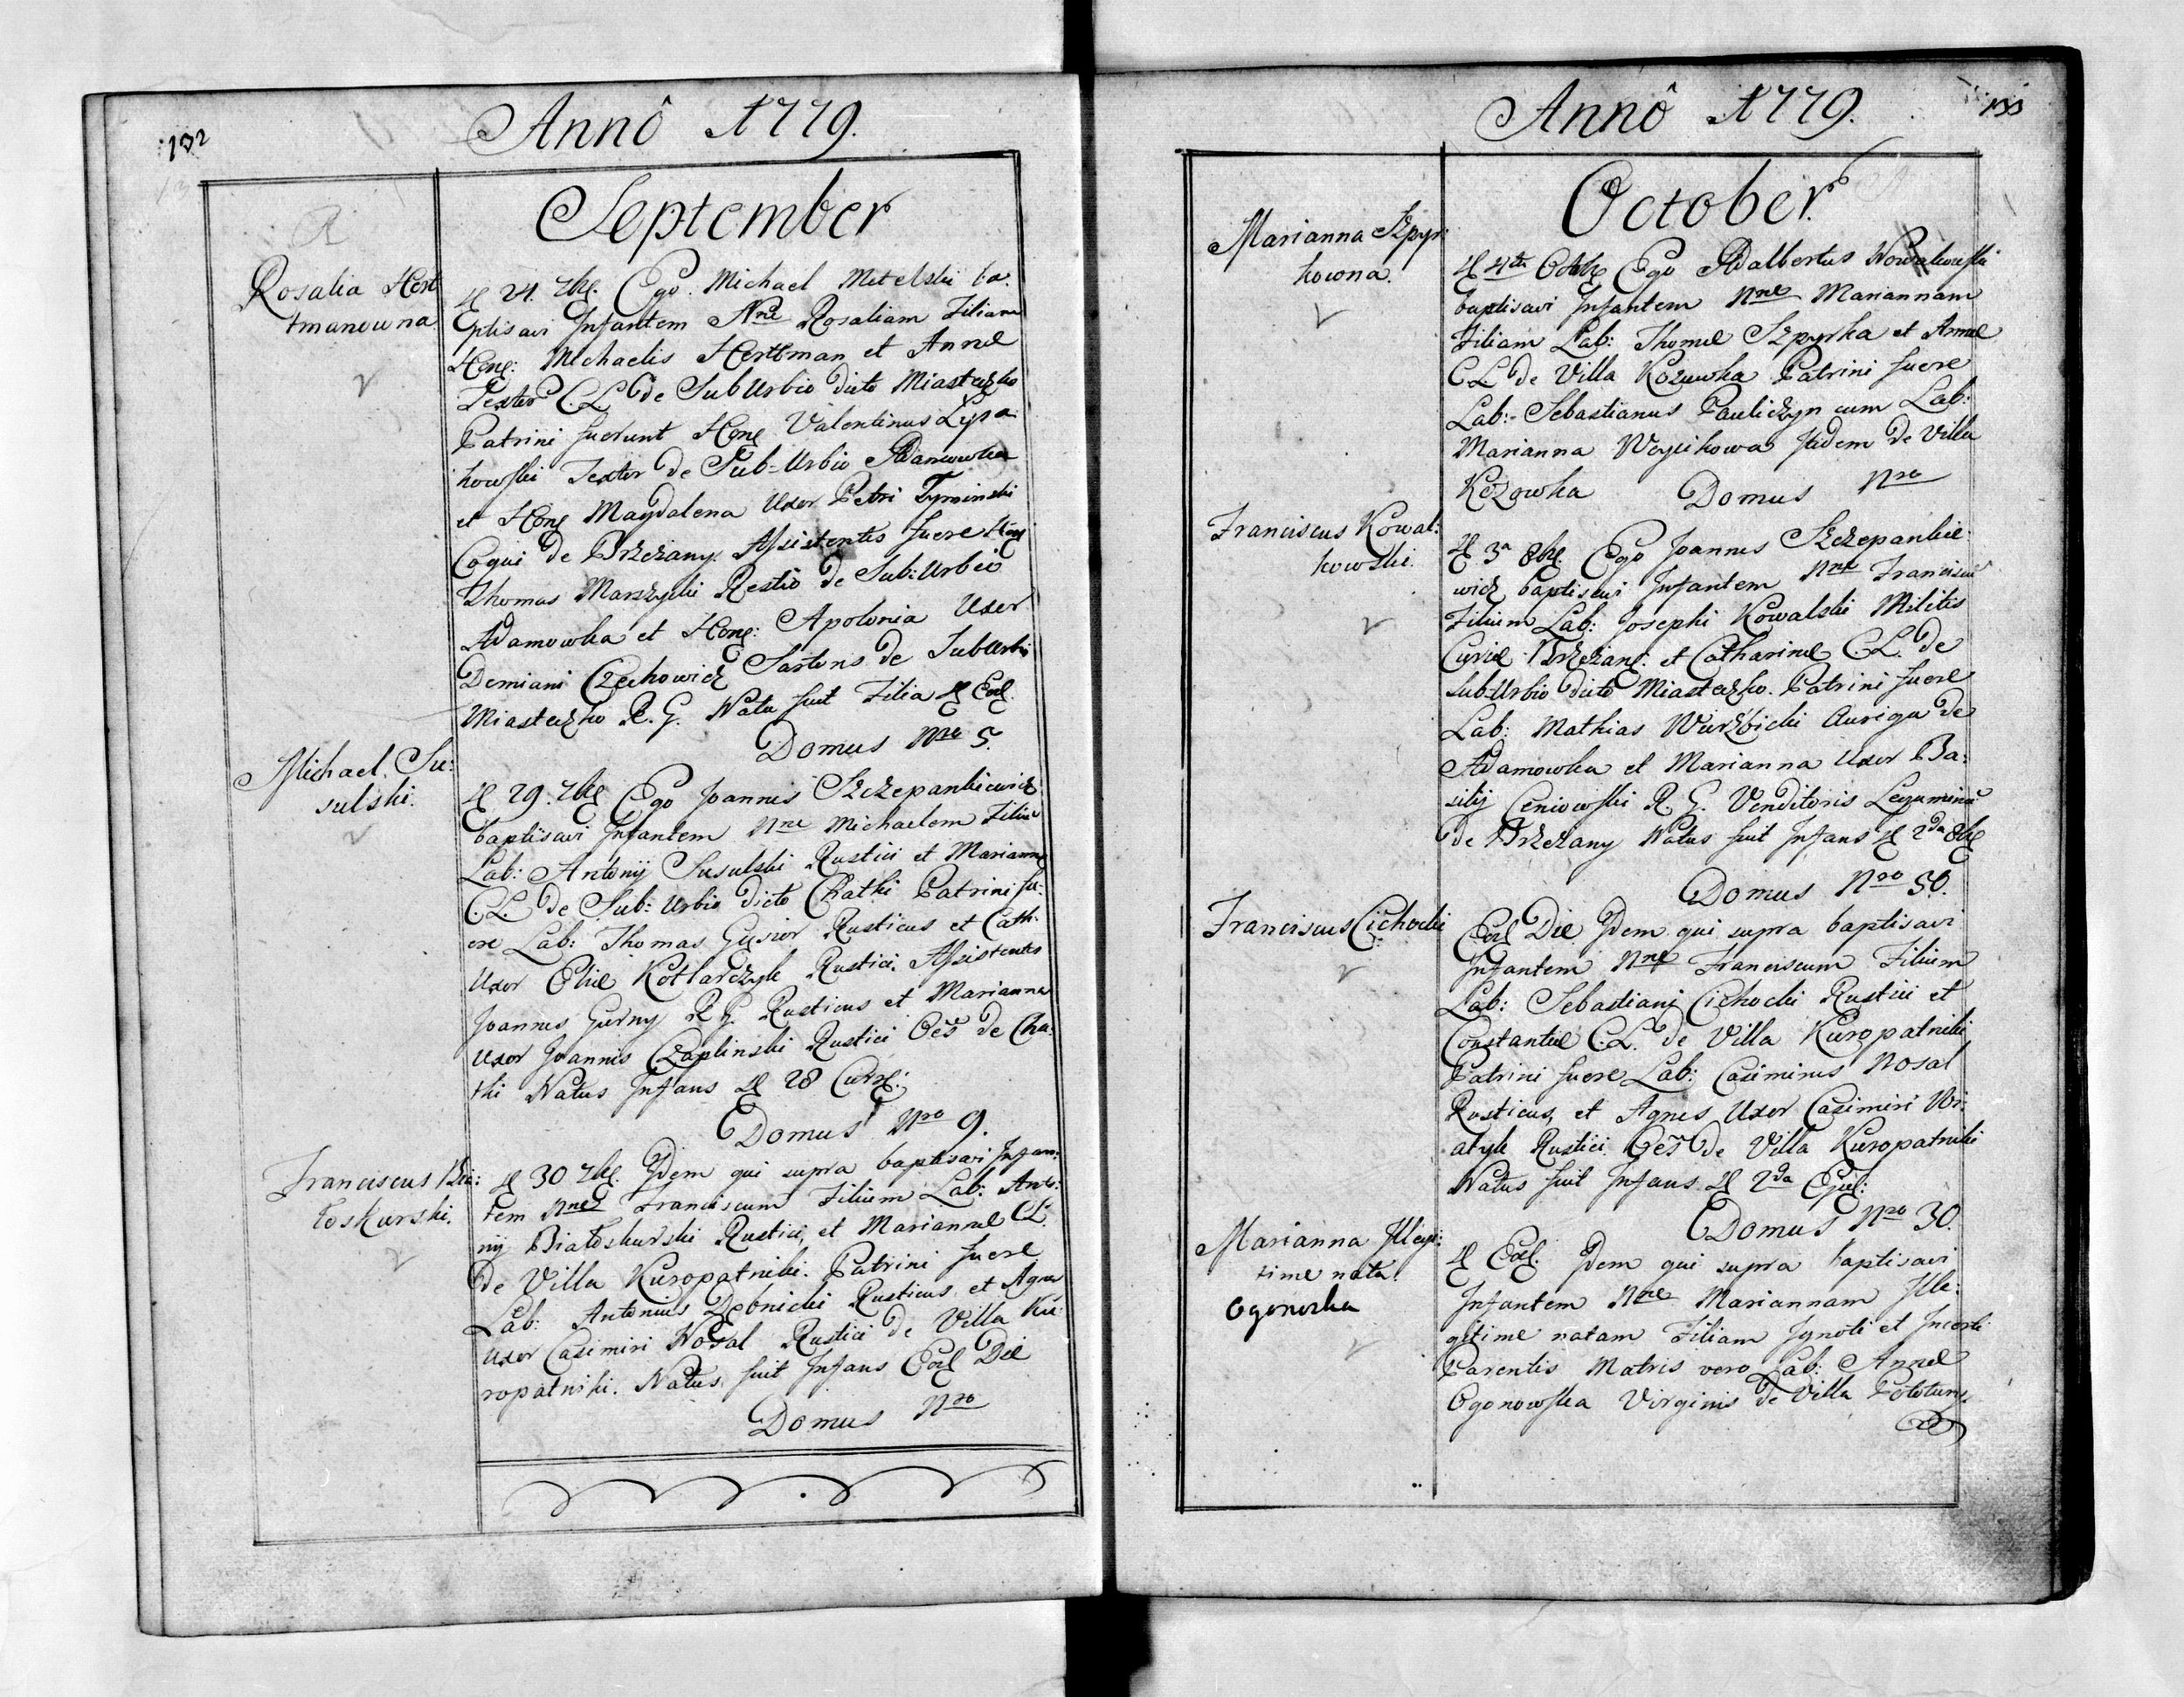 132
Annô 1779.
September
Rosalia Hert
tmanowna
D 24. 7bre. Ego Michael Metelski ba:
ptisavi Infantem Nne Rosaliam Filiam
Hone: Michaelis Herttman et Annæ
Textor C.L. de SubUrbio dicto Miasteczko
Patrini fuerunt Hone Valentinus Lipa
kowski Textor de Sub-Urbio Adamowka
et Hone Magdalena Uxor Petri Tyminski
Coqui de Brzezany. Assistentes fuere Hon
Thomas Marszycki Restio de Sub:Urbio
Adamowka et Hone: Apolonia Uxor
Demiani Czechowicz Sartoris de SubUrbi
Miasteczko R.G. Nata fuit Filia D Ead.
Domus Nro 5.
Michael Su:
sulski.
D 29. 7bre Ego Joannes Szczepankiewicz
baptisavi Infantem Nne Michaelem Filiu
Lab: Antonij Susulski Rustici et Mariannæ
C.L. de Sub: Urbio dicto Chatki Patrini fu:
ere Lab: Thomas Gusior Rusticus et Cath:
Uxor Eliæ Kotlarczyk Rustici. Assistentes
Joannes Gurny R.G. Rusticus et Marianna
Uxor Joannis Czaplinski Rustici Oēs de Cha:
tki Natus Infans D 28 Curre:
Domus Nro 9.
Franciscus Bia:
łoskurski.
D 30 7bre. Idem qui supra baptisavi Infan:
tem Nne Franciscum Filium Lab: Anto:
nij Białoskurski Rustici, et Mariannæ CL.
de Villa Kuropatniki. Patrini fuere
Lab: Antonius Debnicki Rusticus et Agnes
Uxor Casimiri Nosal Rustici de Villa Ku:
ropatniki. Natus fuit Infans Eod Die
Domus Nro
Annô 1779.
133
October
Marianna Szpyr:
kowna.
D 4ta Octobre Ego Adalbertus Nowakowski
baptisavi Infantem Nne Mariannam
Filiam Lab: Thomæ Szpyrka et Annæ
C.L. de Villa Kozowka Patrini fuere
Lab: Sebastianus Pauliczyn cum Lab:
Marianna Woycikowa Itidem de Villa
Kozowka Domus Nro
Franciscus Kowal:
kowski.
D 3a 8bre. Ego Joannes Szczepankie:
wicz baptisavi Infantem Nne Franciscu
Filium Lab: Josephi Kowalski Militis
Curiæ Brzezane: et Catharinæ C.L. de
SubUrbio dicto Miasteczko. Patrini fuere
Lab: Mathias Wurzbicki Auriga de
Adamowka et Marianna Uxor Ba:
silij Ceniowski R.G. Venditoris Leguminū
de Brzezany Natus fuit Infans D 2da 8bre
Domus Nro 50.
Franciscus Cichocki
Eod Die Idem qui supra baptisavi
Infantem Nne Franciscum Filium
Lab: Sebastiani Cichocki Rustici et
Constantiæ C.L. de Villa Kuropatniki
Patrini fuere Lab: Casimirus Nosal
Rusticus, et Agnes Uxor Casimiri Wi:
atyk Rustici Oēs de Villa Kuropatniki
Natus fuit Infans D 2da
Domus Nro 30.
Marianna Illegi:
time nata.
Ogonoska
D Ead. Idem qui supra baptisavi
Infantem Nne Mariannam Ille:
gitime natam Filiam Ignoti et Incerti
Parentis Matris vero Lab: Annæ
Ogonowska Virginis de Villa Potutury